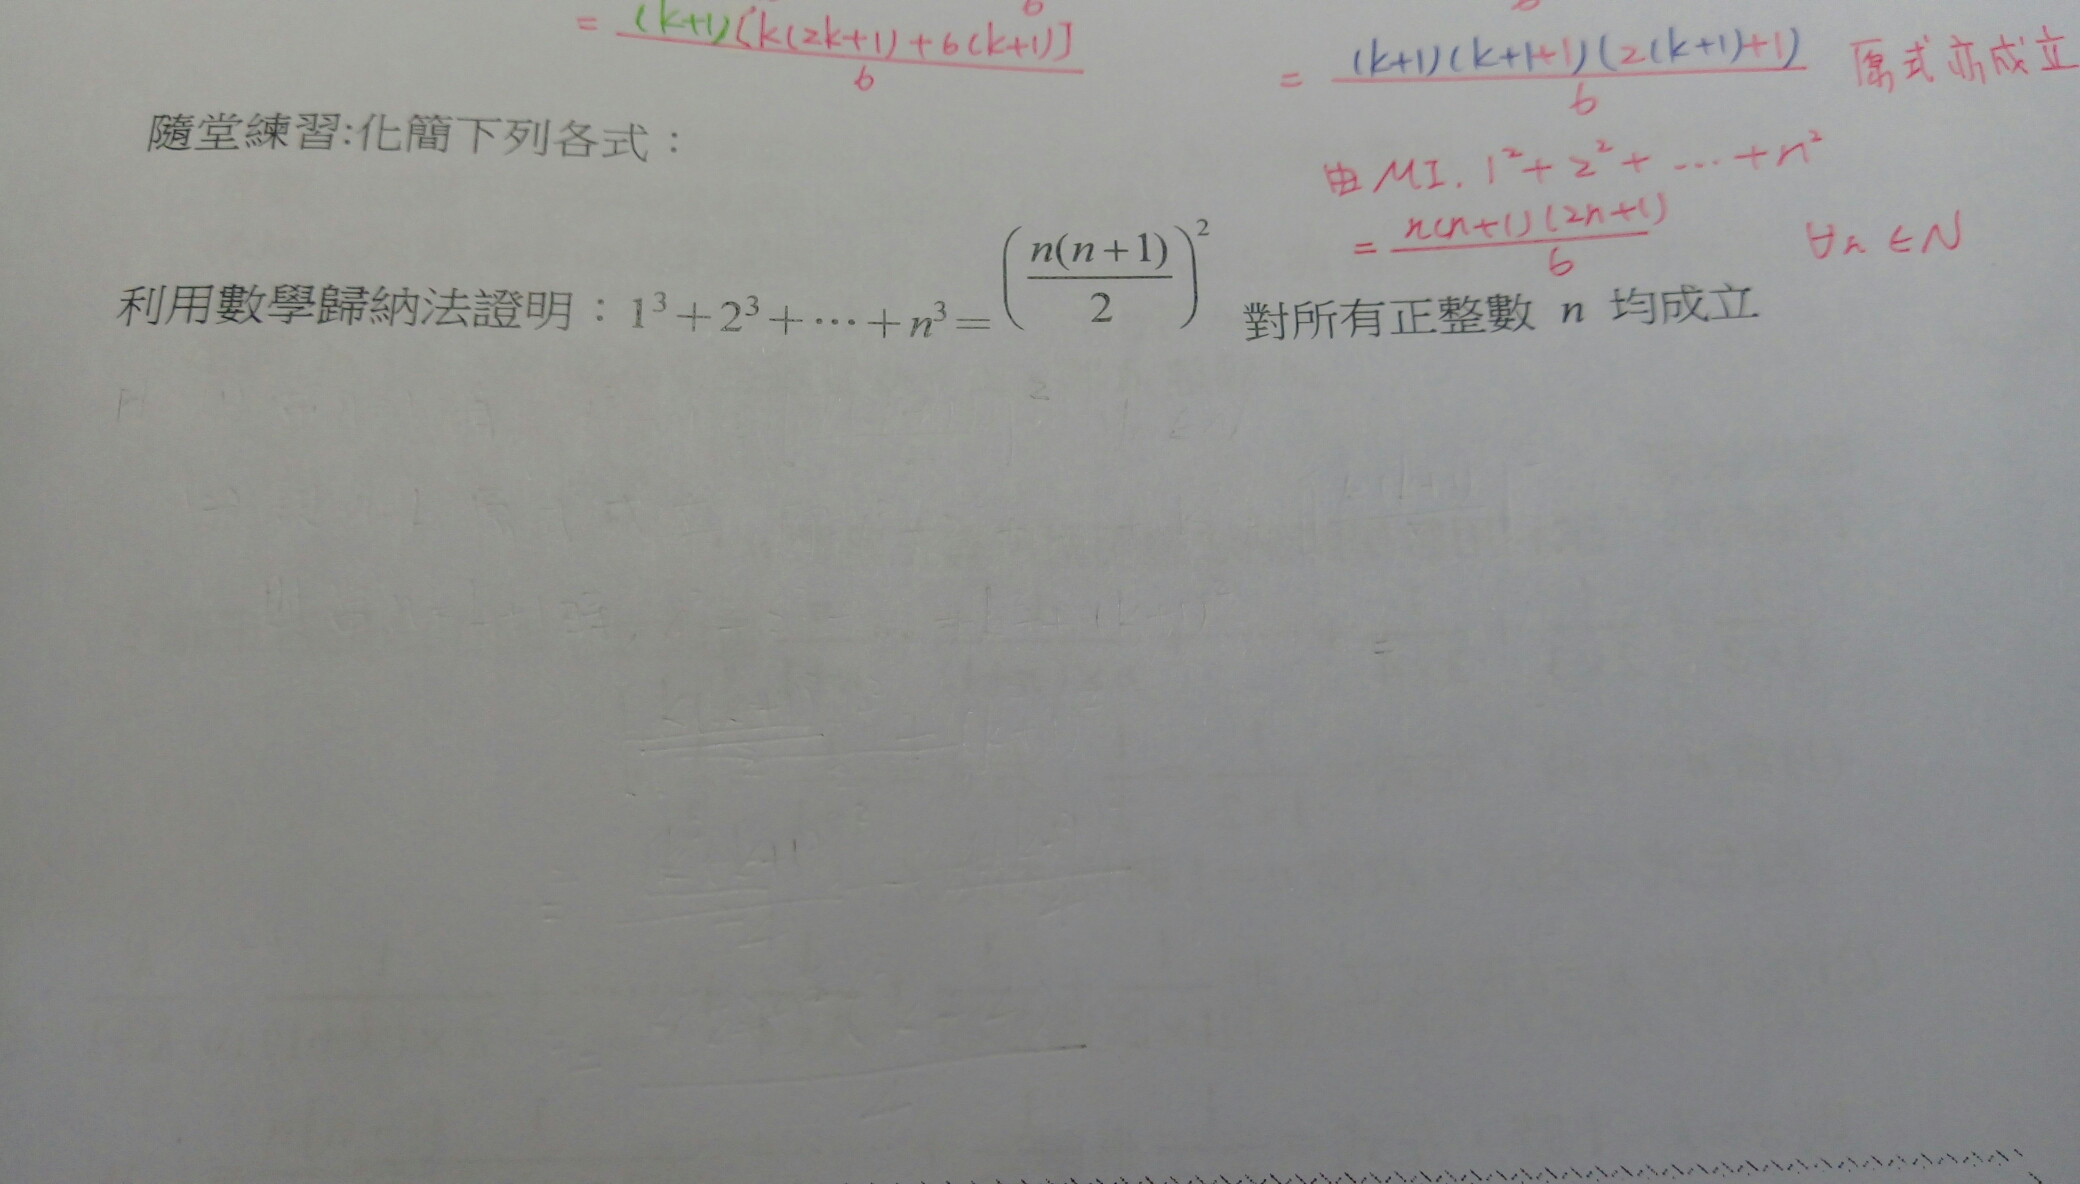 = (k+1)[k(2k+1)+6(k+1)] / 6
= (k+1)(k+1+1)(2(k+1)+1) / 6 原式亦成立
隨堂練習:化簡下列各式：
由MI. 1²+2²+…+n²
= n(n+1)(2n+1) / 6 ∀n∈N
利用數學歸納法證明：1³+2³+⋯+n³=(n(n+1)/2)² 對所有正整數 n 均成立